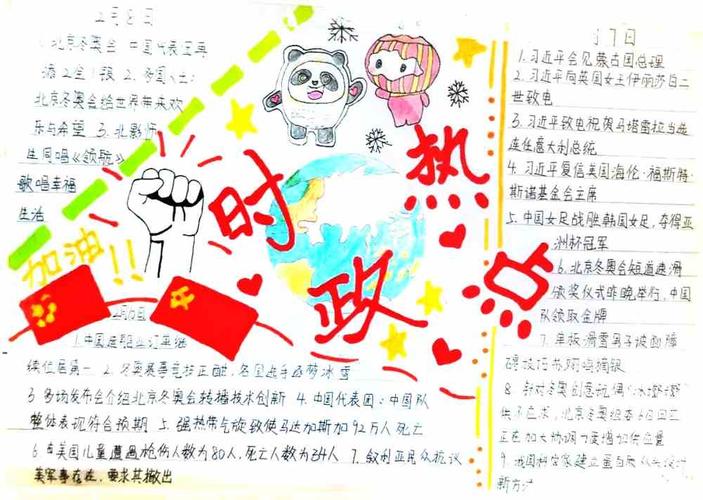 2月8日
1.北京冬奥会中国代表团再
添2金1银 2.各国人士:
北京冬奥会给世界带来欢
乐与希望 3.北影师
生同唱《领航》
歌唱幸福
生活
加油!!
时政热点
1.中国造船业订单继
续位居第一 2.冬奥赛事竞技正酣,各国选手逐梦冰雪
3.多场发布会介绍北京冬奥会转播技术创新 4.中国代表团:中国队
整体表现符合预期 5.强热带气旋致使马达加斯加92万人死亡
6.由美国儿童遭遇枪伤人数为80人,死亡人数为34人 7.叙利亚民众抗议
美军事存在,要求其撤出
月7日
1.习近平会见蒙古国总理
2.习近平向英国女王伊丽莎白二
世致电
3.习近平致电祝贺马塔雷拉当选
连任意大利总统
4.习近平复信美国海伦·福斯特·
斯诺基金会主席
5.中国女足战胜韩国女足,夺得亚
洲杯冠军
6.北京冬奥会短道速滑
颁奖仪式昨晚举行,中国
队领取金牌
7.单板滑雪男子坡面障
碍技巧苏翊鸣摘银
8.针对冬奥创意玩偶"冰墩墩"
供不应求,北京冬奥组委6日回应
正在加大协调力度增加供应量
9.我国科学家建立蛋白质从头设计
新方法